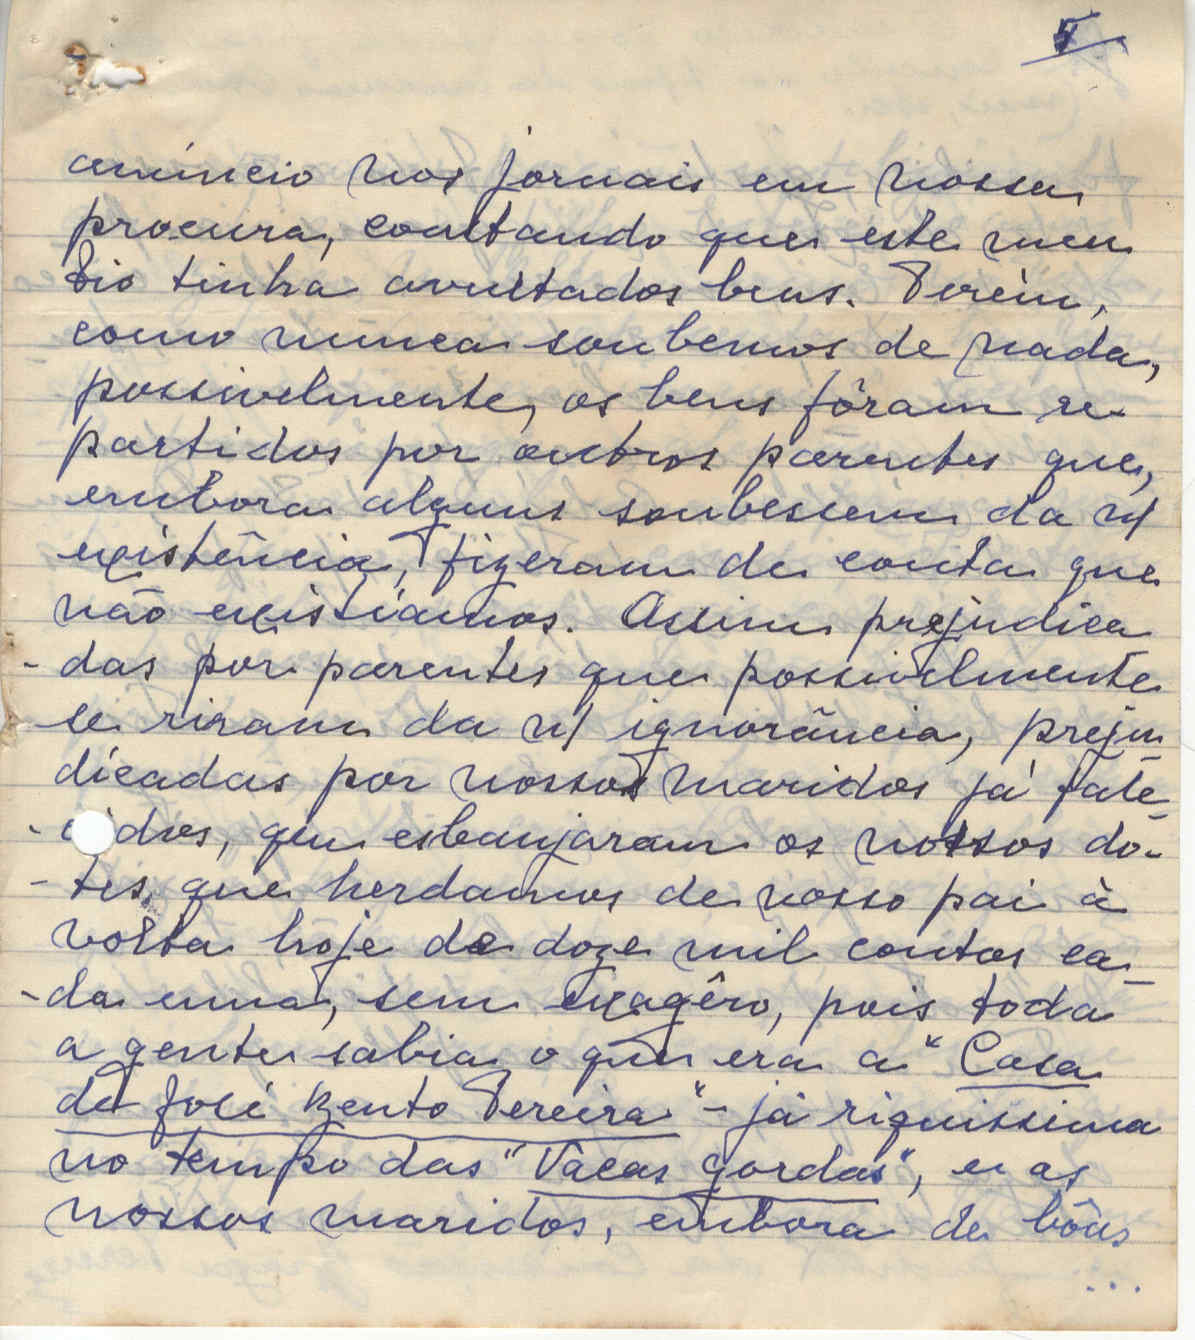 5
anúncio nos jornais em nossa
procura, contando que este meu
tio tinha avultados bens. Porém,
como nunca soubemos de nada,
possivelmente, os bens fôram re-
partidos por outros parentes que,
embora alguns soubessem da n/
existência, fizeram de conta que
não existíamos. Assim prejudica
-das por parentes que possivelmente
se riram da n/ ignorância, preju-
dicadas por nossos maridos já fale-
-cidos, que esbanjaram os nossos do-
-tes que herdamos de nosso pai à
volta hoje de doze mil contos ca-
-da uma, sem exagêro, pois toda
a gente sabia o que era a "Casa
de José Bento Pereira" - já riquissima
no tempo das "Vacas gordas", e as
nossos maridos, embora de bôas
...